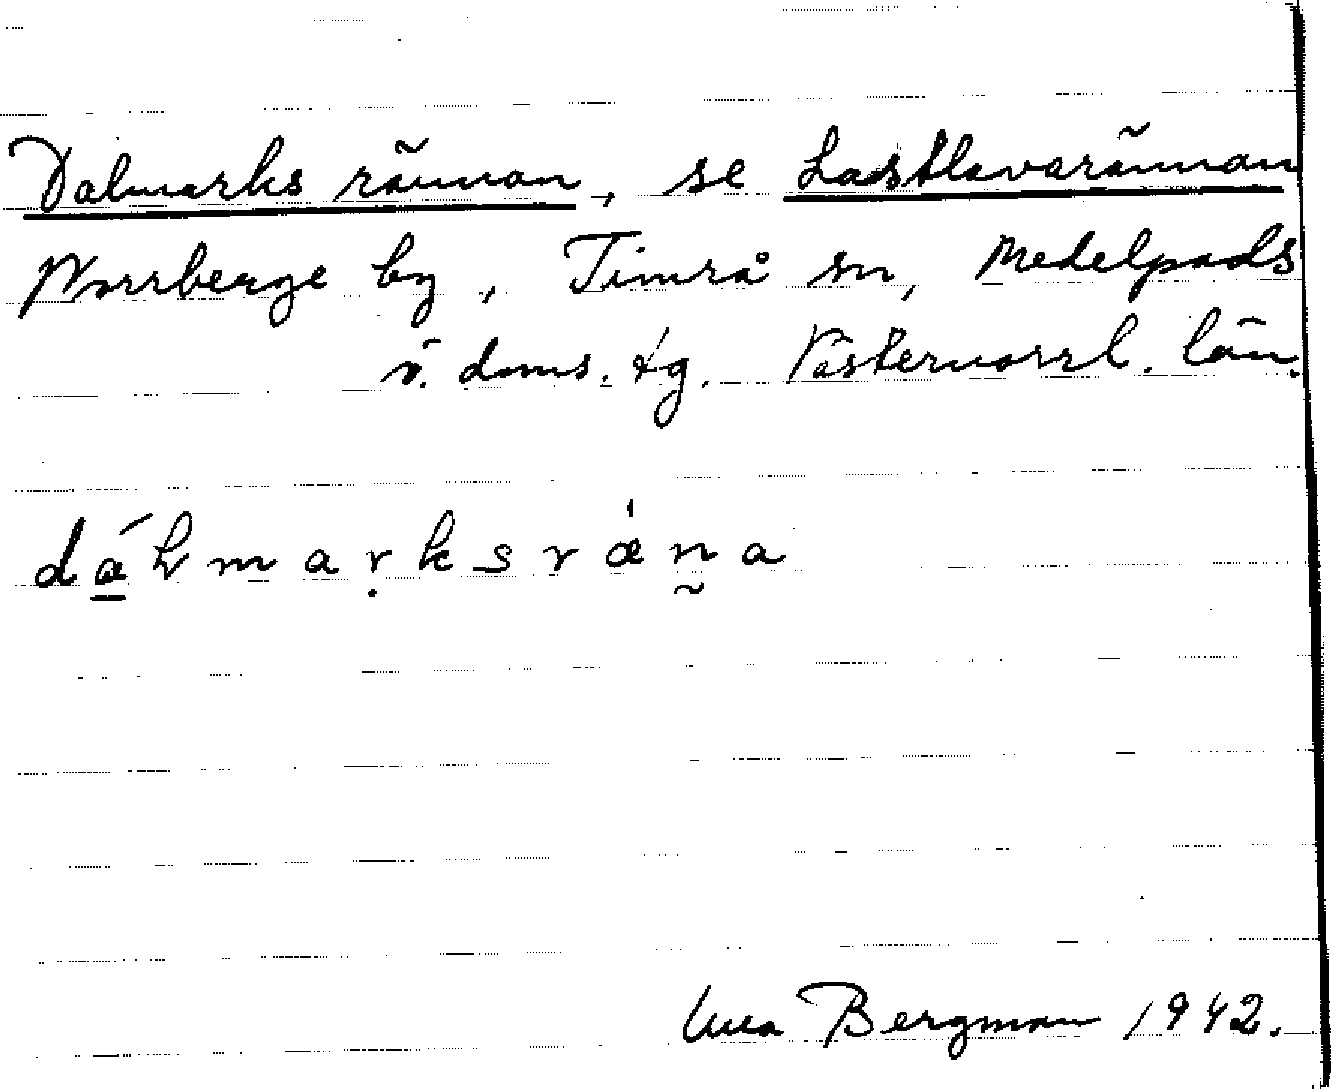 Dalmarks rännan, se Lastlavarännan
Norrberge by, Timrå sn, Medelpads
v. doms. tg. Västernorrl. län.
dálmarksrǽna
Bergman 1942.